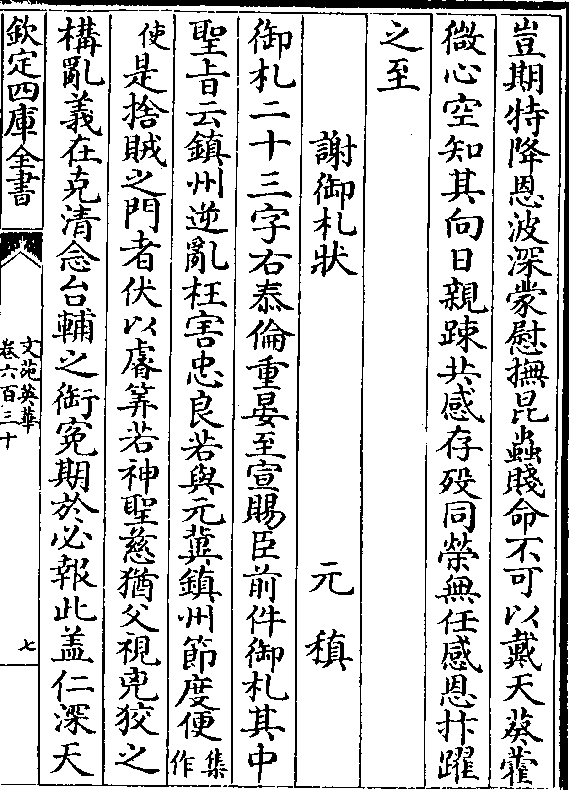 豈期特降恩波深蒙慰撫昆蟲賤命不可以戴天葵藿
微心空知其向日親踈共感存殁同榮無任感恩抃躍
之至
謝御札狀 元稹
御札二十三字右泰倫重晏至宣賜臣前件御札其中
聖旨云鎮州逆亂枉害忠良若與元兾鎮州節度便集作
使是捨賊之門者伏以睿筭若神聖慈猶父視兇狡之
構亂義在克清念台輔之衘寃期於必報此盖仁深天
欽定四庫全書
文苑英華
卷六百三十
七